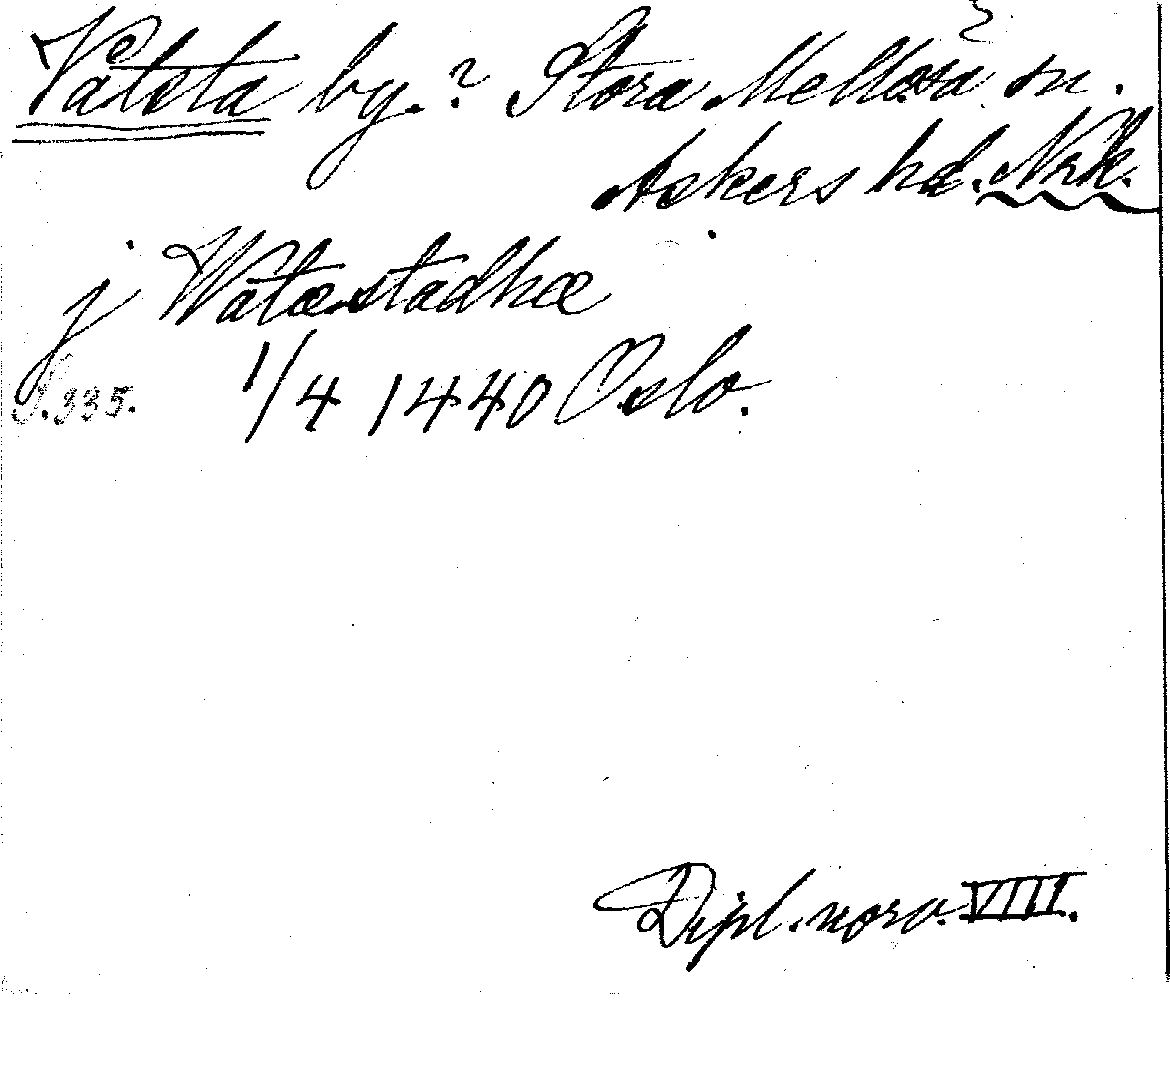 Vatsta by.? Stora Mellösa sn.
Askers hd. Nrk.
j Watæstadhæ
S. 335. 1/4 1440 Oslo.
Dipl. norv. VIII.